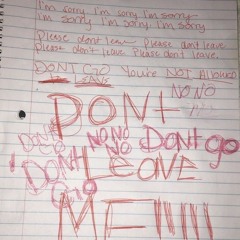 I'm sorry I'm sorry I'm sorry
I'm sorry I'm sorry I'm sorry
Please dont leave Please dont leave
Please dont leave Please dont leave.
DONT GO You're NOT Allowed
LEAVE
NO NO
DONT
DONT GO
NO NO NO
DONT go
DONT
LEAVE
GO
ME!!!!!